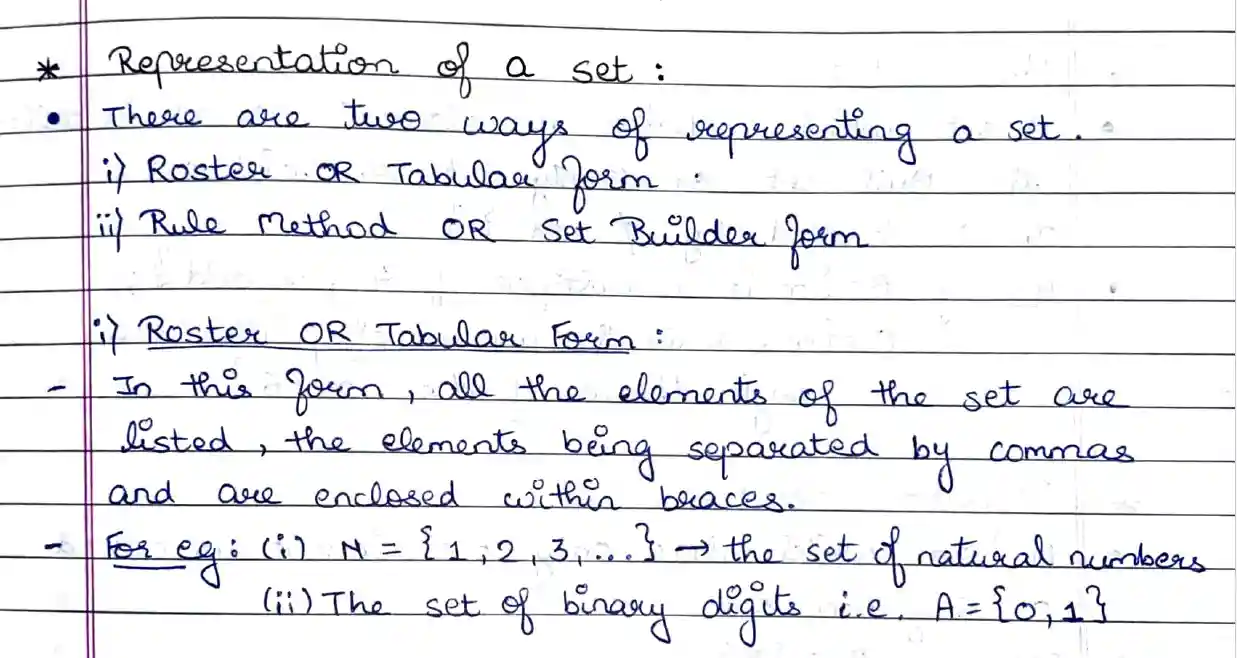 * Representation of a set :
• There are two ways of representing a set.
i) Roster OR Tabular form
ii) Rule Method OR Set Builder form
i) Roster OR Tabular Form :
- In this form, all the elements of the set are
listed, the elements being separated by commas
and are enclosed within braces.
- For eg: (i) N = {1, 2, 3, ...} → the set of natural numbers
(ii) The set of binary digits i.e. A = {0, 1}